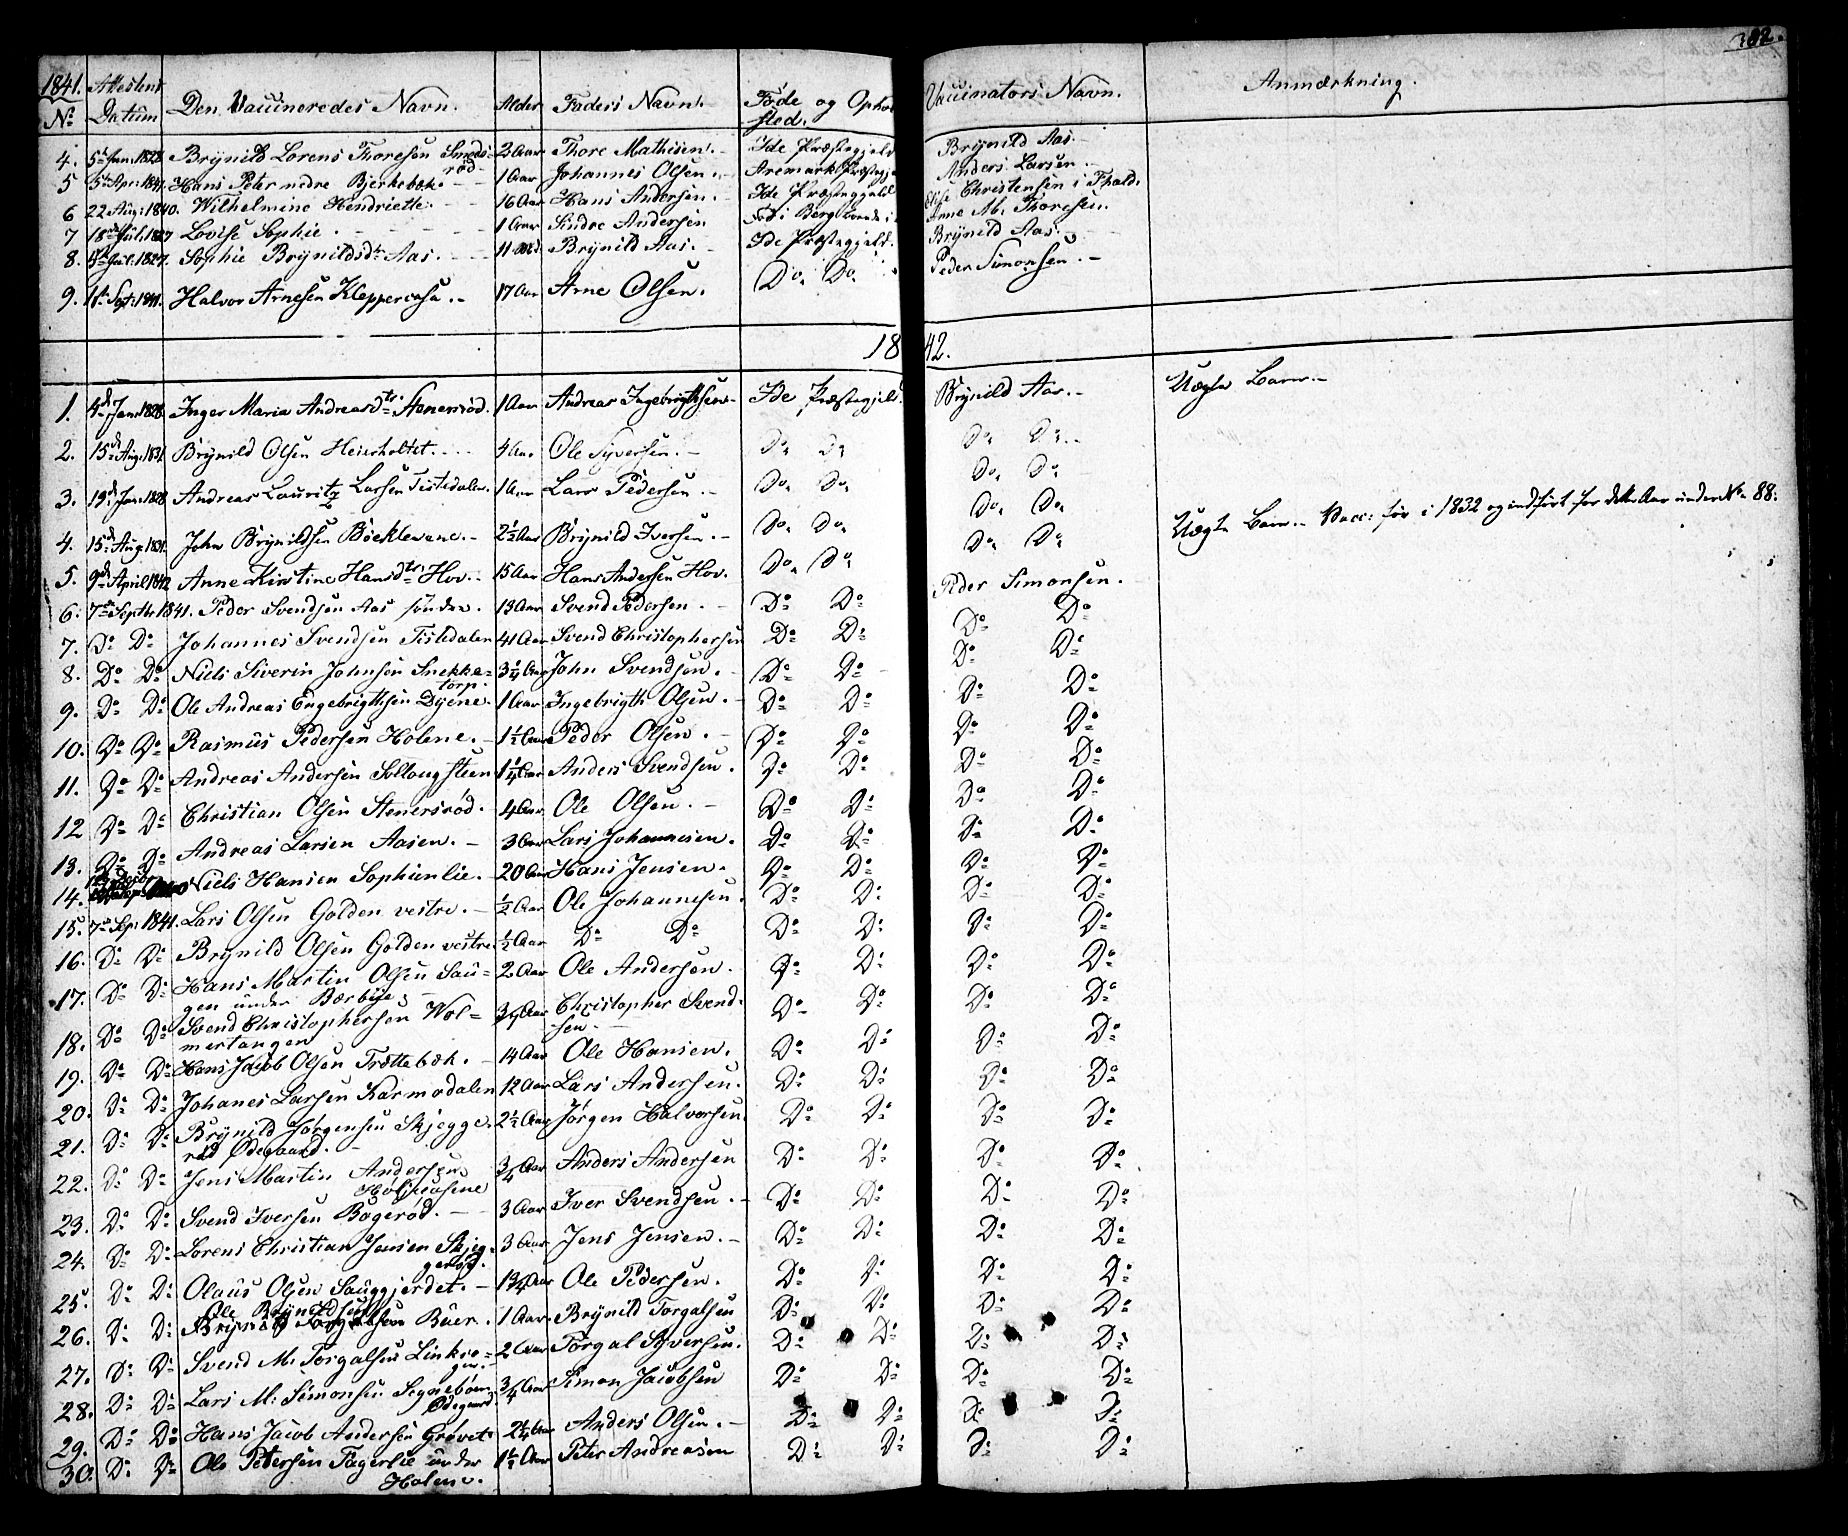 302.
1841. Attestens
No Datum Den Vaccineredes Navn. Alder Faders Navn. Føde og Opholds sted. Vaccinators Navn. Anmærkning.
4. 5 Jan: 1828 Brÿnild Lorens Thoresen Smedsrød 2 Aar Thore Mathisen. Ide Præstegjeld Brÿnild Aas.
5 5 Apr: 1841. Hans Peter nedre Bjerkebæk. 1 Aar Johannes Olsen. Aremark Præstegj Anders Larsen.
6 22 Aug: 1840. Wilhelmine Hendriette. 16 Aar Hans Andersen. Ide Præstegjeld Elise Christensen i Fhald.
7 18 Jul: 1827 Lovise Sophie. 1 Aar Sindre Andersen Fød i Berg Anne M. Thoresen.
8. 4 Jul. 1827. Sophie Brÿnildsdr Aas. 11 Md Brÿnild Aas. Ide Præstegjeld. Brÿnild Aas.
9. 1 Sept: 1841. Halvor Arnesen Kleppercasa. 17 Aar Arne Olsen. Do. Do. Peder Simonsen.
1842.
1. 4 Jan: 1828. Inger Maria Andreasdtr. Stenersrød. 1 Aar Andreas Ingebrigthsen Ide Præstegjeld Brÿnild Aas. Uægte Barn.
2. 15 Aug: 1831. Brÿnild Olsen Heierholtet. 4 Aar Ole Syversen. Do Do Do. Do.
3. 19 Jan: 1828 Andreas Lauritz Larsen Tistedalen. 1 Aar Lars Pedersen. Do. Do. Do. Do.
4. 15 Aug: 1831. John Brÿnildsen Bøeklevene. 2½ Aar Brÿnild Iversen. Do. Do. Do. Do.
5. 9 April 1842 Anne Kirstine Hansdtr Hov. 15 Aar Hans Andersen Hov. Do. Do. Do. Do. Uægte Barn. Vacc: før i 1832 og indført for dette Aar under No 88.
6. 7 Septbr 1841. Peder Svendsen Aas søndre. 13 Aar Svend Pedersen. Do Do Peder Simonsen.
7. Do Do Johannes Svendsen Tistedalen 41 Aar Svend Christophersen Do Do Do Do
8. Do Do Niels Siverin Johnsen Snekketorp. 3¼ Aar John Svendsen. Do Do Do Do
9. Do Do Ole Andreas Engebrigthsen Dÿene. 1 Aar Ingebrigth Olsen. Do Do Do Do
10. Do Do Rasmus Pedersen Holene. 1½ Aar Peder Olsen. Do Do Do Do
11. Do Do Andreas Andersen Sollaugsteen 1¼ Aar Anders Svendsen. Do Do Do Do
12 Do Do Christian Olsen Stenersrød. 4 Aar Ole Olsen. Do Do Do Do
13. Do Do Andreas Larsen Aasen. 3 Aar Lars Johannesen. Do Do Do Do
14. Niels Hansen Sophienlie. 20 Aar Hans Jensen. Do Do Do Do
15. 7 Sep: 1841. Lars Olsen Golden vestre. ½ Aar Ole Johannesen. Do Do Do Do
16. Do Do Brÿnild Olsen Golden vestre. ½ Aar Do Do Do Do Do Do
17. Do Do Hans Martin Olsen Saugen under Bærbÿe. 2 Aar Ole Andersen. Do Do Do Do
18. Do Do Svend Christophersen Wolmertangen ¾ Aar Christopher Svendsen. Do Do Do Do
19. Do Do Hans Jacob Olsen Trættebæk. 14 Aar Ole Hansen. Do Do Do Do
20. Do Do Johanes Larsen Karmadalen 12 Aar Lars Andersen. Do Do Do Do
21. Do Do Brÿnild Jørgensen Skjeggerød Ødegaard. 2½ Aar Jørgen Halvorsen. Do Do Do Do
22. Do Do Jens Martin Andersen Holskaasene ¾ Aar Anders Andersen Do Do Do Do
23. Do Do Svend Iversen Bøgerød. 3 Aar Iver Svendsen. Do Do Do Do
24. Do Do Lorens Christian Jensen Skjeggerød. 3 Aar Jens Jensen. Do Do Do Do
25. Do Do Olaus Olsen Sauggjerdet. 1¾ Aar Ole Pedersen. Do Do Do Do
26. Do Do Ole Brynildsen Buer. 1 Aar. Brÿnild Torgalsen Do Do Do Do
27. Do Do Svend M. Torgalsen 2 Aar Torgal Syversen. Do Do Do Do
28. Do Do Lars M. Simonsen Segnebøen Ødegaard ¾ Aar Simon Jacobsen Do Do Do Do
29. Do Do Hans Jacob Andersen Grøvet. 2¼ Aar Anders Olsen. Do Do Do Do
30. Do Do Ole Petersen Fagerlie under Holene. 1½ Aar Peter Andreasen Do Do Do Do